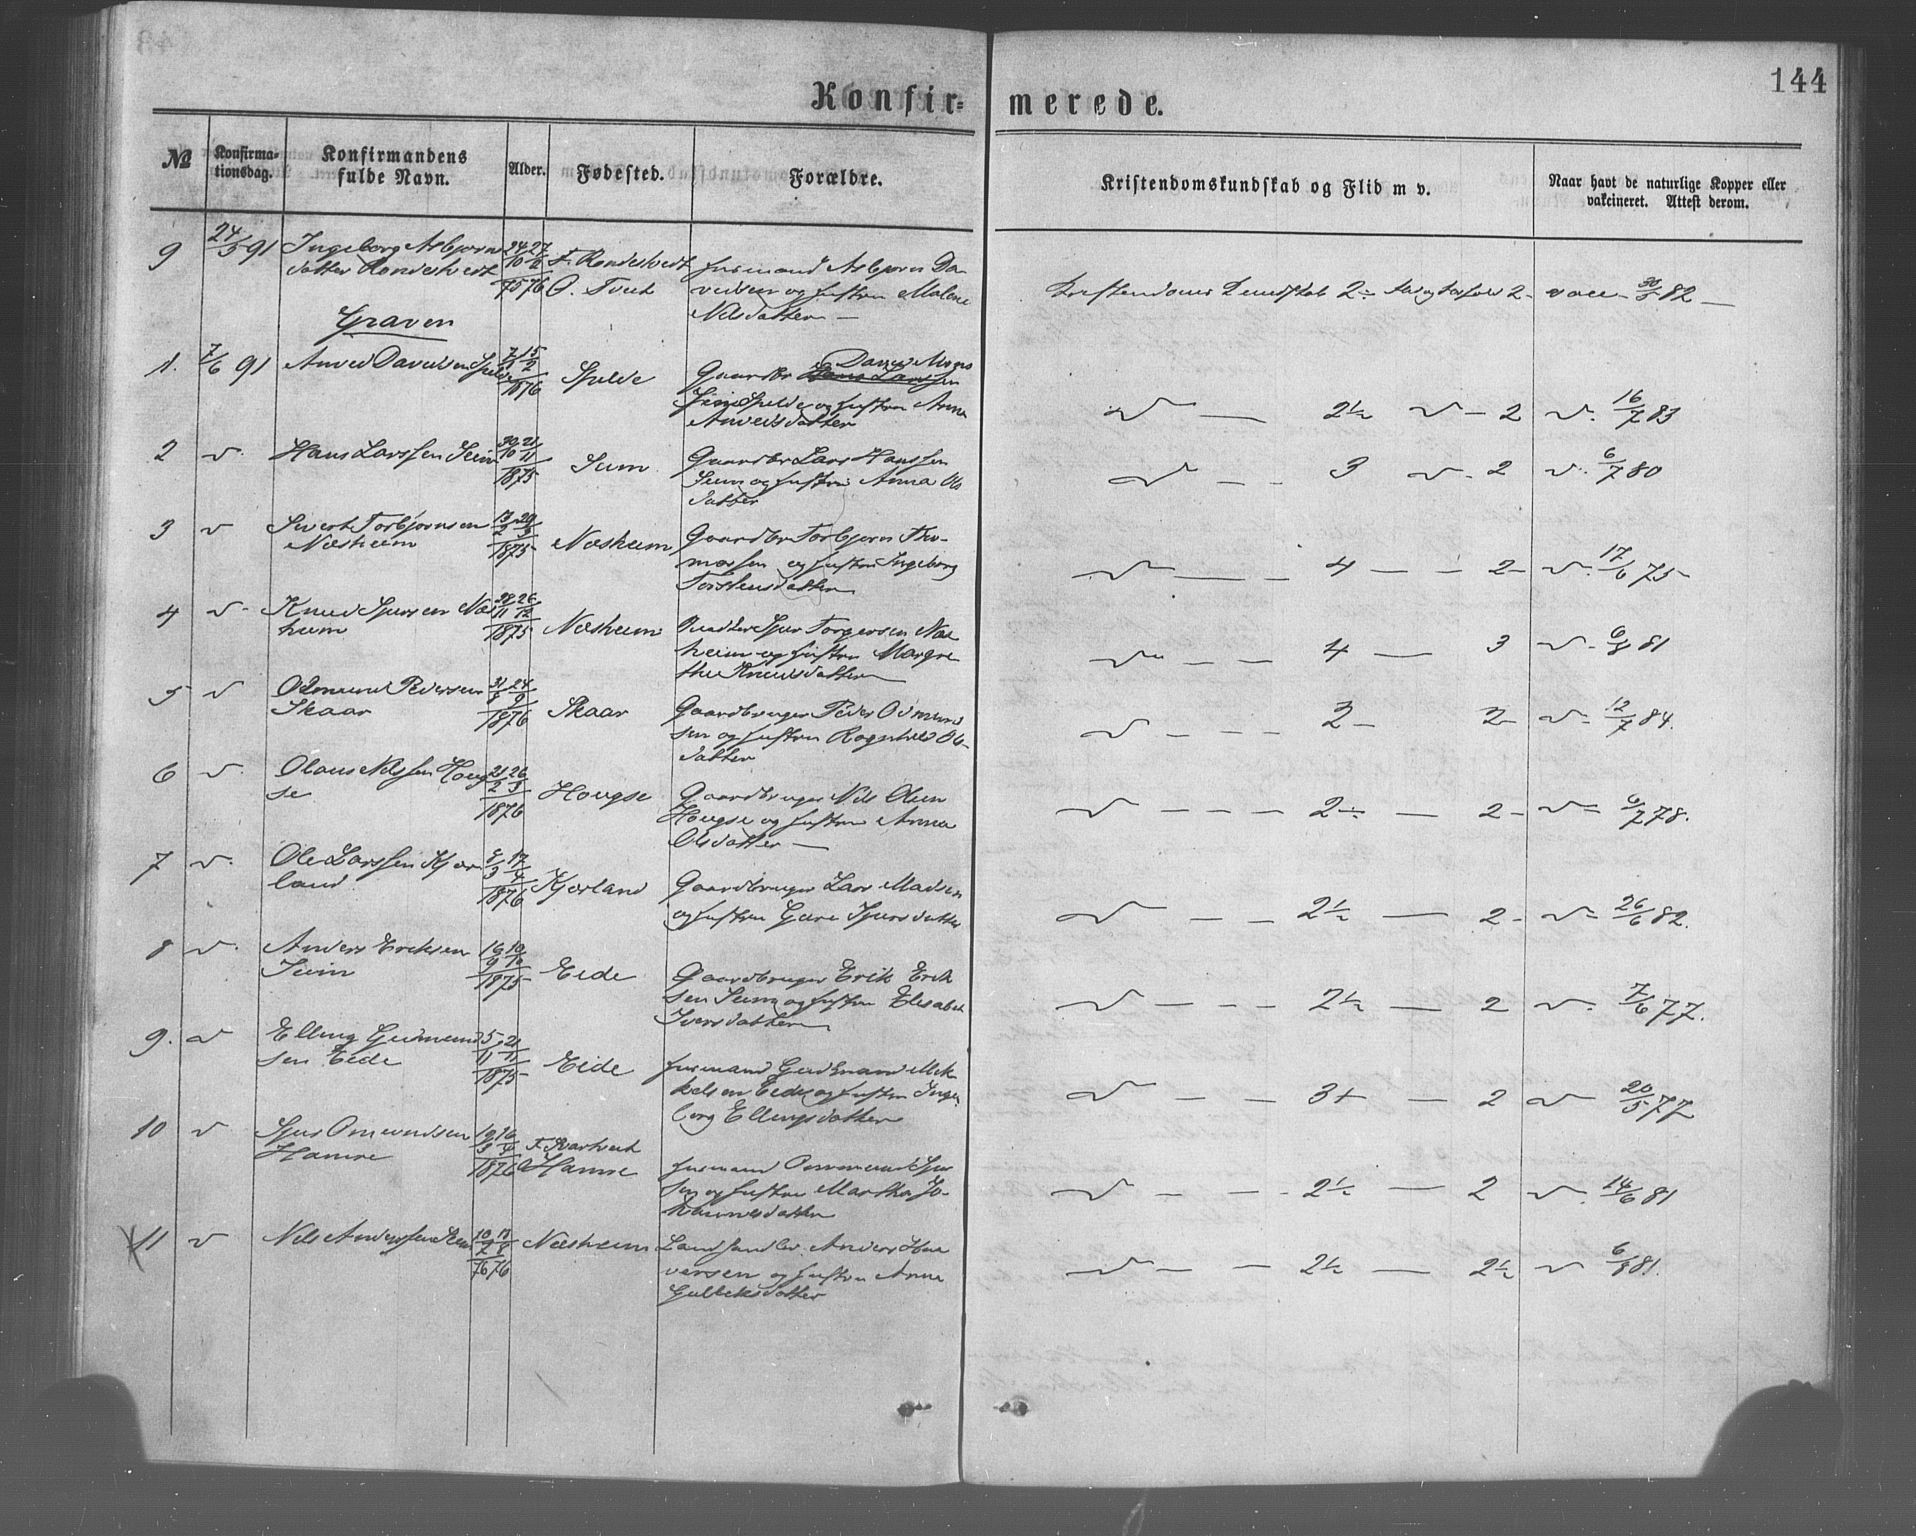 144
Konfir= merede.
No
Konfirma-
tionsdag.
Konfirmandens
fulde Navn.
Alder.
Fødested.
Forældre.
Kristendomskundskab og Flid m v.
Naar havt de naturlige Kopper eller
vakcineret. Attest derom.
9 24/5 91 Ingeborg Asbjørns 24/10 27/2 F. Rondestvedt
datter Rondestvedt 75 76 O. Tveit
husmand Asbjørn Da-
vidsen og hustru Malene
Nilsdatter —
Kristendoms Kundskab 2÷ 2- vacc 30/5 82 —
Graven
1. 7/6 91 Anved Davidsen Spilde 1876 Spilde
Gaardbr David Mons
sen
Spilde og hustru Anna
Anvedsdatter
2½ 2 16/7 83
2 Hans Larssen Seim 30/10 21/11 1875 Seim
Gaardbr Lars Hanssen
Seim og hustru Anna Ols
datter
3 2 6/7 80
3 Sivert Torbjørnsen
Næsheim 1875 Næsheim
Gaardbr Torbjørn Tho-
massen og hustru Ingeborg
Torstensdatter
4 2- 17/6 75
4 Knud Sjursen Næs
heim 28/11 26/12 1875 Næsheim
Sjur Torgersen Næs
heim og hustru Margre
the Knudsdatter
4 3 6/8 81
5 Odmund Pedersen
Skaar 1876 Skaar
Gaardbruger Peder Odmund
sen og hustru Ragnhild Ols-
datter
2 2 12/7 84.
6 Olaus Nilssen Houg
se 21/2 26/3 1876 Hougse
Gaardbruger Nils Olsen
Hougse og hustru Anna
Olsdatter —
2÷ 2- 6/7 78.
7 Ole Larssen Kjær
land 8/3 17/4 1876 Kjærland
Gaardbruger Lars Madsen
og hustru Guro Sjursdatter
2½ 2- 26/6 82.
8 Anders Eriksen
Seim 1875 Eide
Gaardbruger Erik Erik
sen Seim og hustru Elisabet
Iversdatter
2½ 2 7/6 77.
9. Elling Gudmund
sen Eide 5/11 21/11 1875 Eide
husmand Gudmund Mik
kelsen Eide og hustru Inge-
borg Ellingsdatter
3+ 2 20/5 77
10 Sjur Omundsen
Hamre 19/3 16/4 1876 F. Kvartveit
Hamre
husmand Ommund Sjur
sen og hustru Martha Jo-
hannesdatter
2½ 2 14/6 81
11 Nils Anderssen 76 76 Næsheim
Landhandler Anders Haa
versen og hustru Anna
Gulleiksdatter
2½ 2½ 6/8 81.